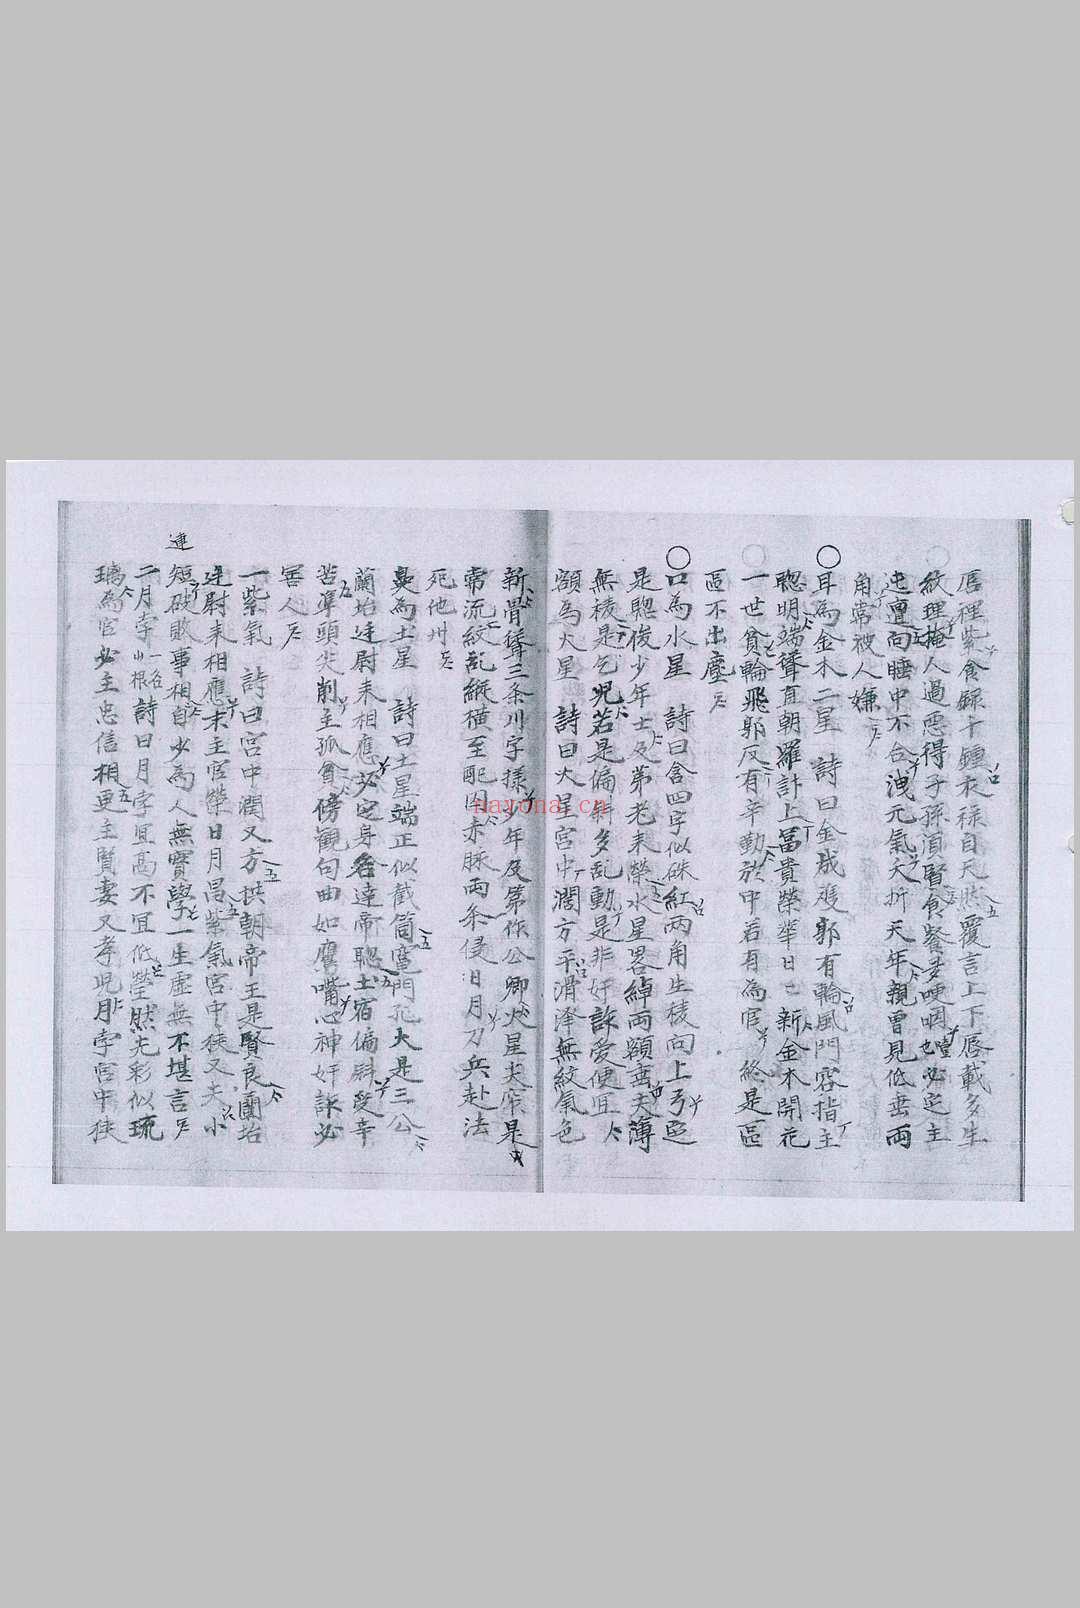 唇裡紫食録千鍾衣禄自天然覆言上下唇載多生
紋理掩人過惡得子孫湏賢食餐更哽咽也必定主
迍邅向睡中不合洩元氣夭折天年親曾見低垂兩
角常被人嫌
○耳為金木二星 詩曰金成廓有輪風門容指主
聰明端聳直朝羅計上冨貴榮華日日新金木開花
一世貧輪飛郭反有辛勤於中若有為官 終是區
區不出塵
○口為水星 詩曰含四字似硃紅兩角生稜向上弓定
是聰俊少年士及弟老来榮水星畧綽兩額垂尖薄
無稜是乞児若是偏斜多乱動是非奸詐愛便宜
額為火星 詩曰火星宮中濶方平滑泽無紋氣色
新骨聳三条川字樣少年及第作公卿火星尖窄是
常流紋乱縱横至配囚赤脉兩条侵日月刀兵赴法
死他州
鼻為土星 詩曰土星端正似截筒竃門孔大是三公
蘭坮廷尉来相應必定身名達帝聦土宿偏斜受辛
苦準頭尖削主孤貧傍観勾曲如鷹嘴心神奸詐必
害人
一紫氣 詩曰宮中濶又方拱朝帝王是賢良蘭坮
廷尉来相應末主官榮日月昌紫氣宮中狹又尖小
短破敗事相自少為人無實學一生虚無不堪言
連
二月孛一名山根詩曰月孛宜髙不宜低瑩然光彩似琉
璃為官必主忠信相更主賢妻又孝児月孛宮中狹
nayona.cn